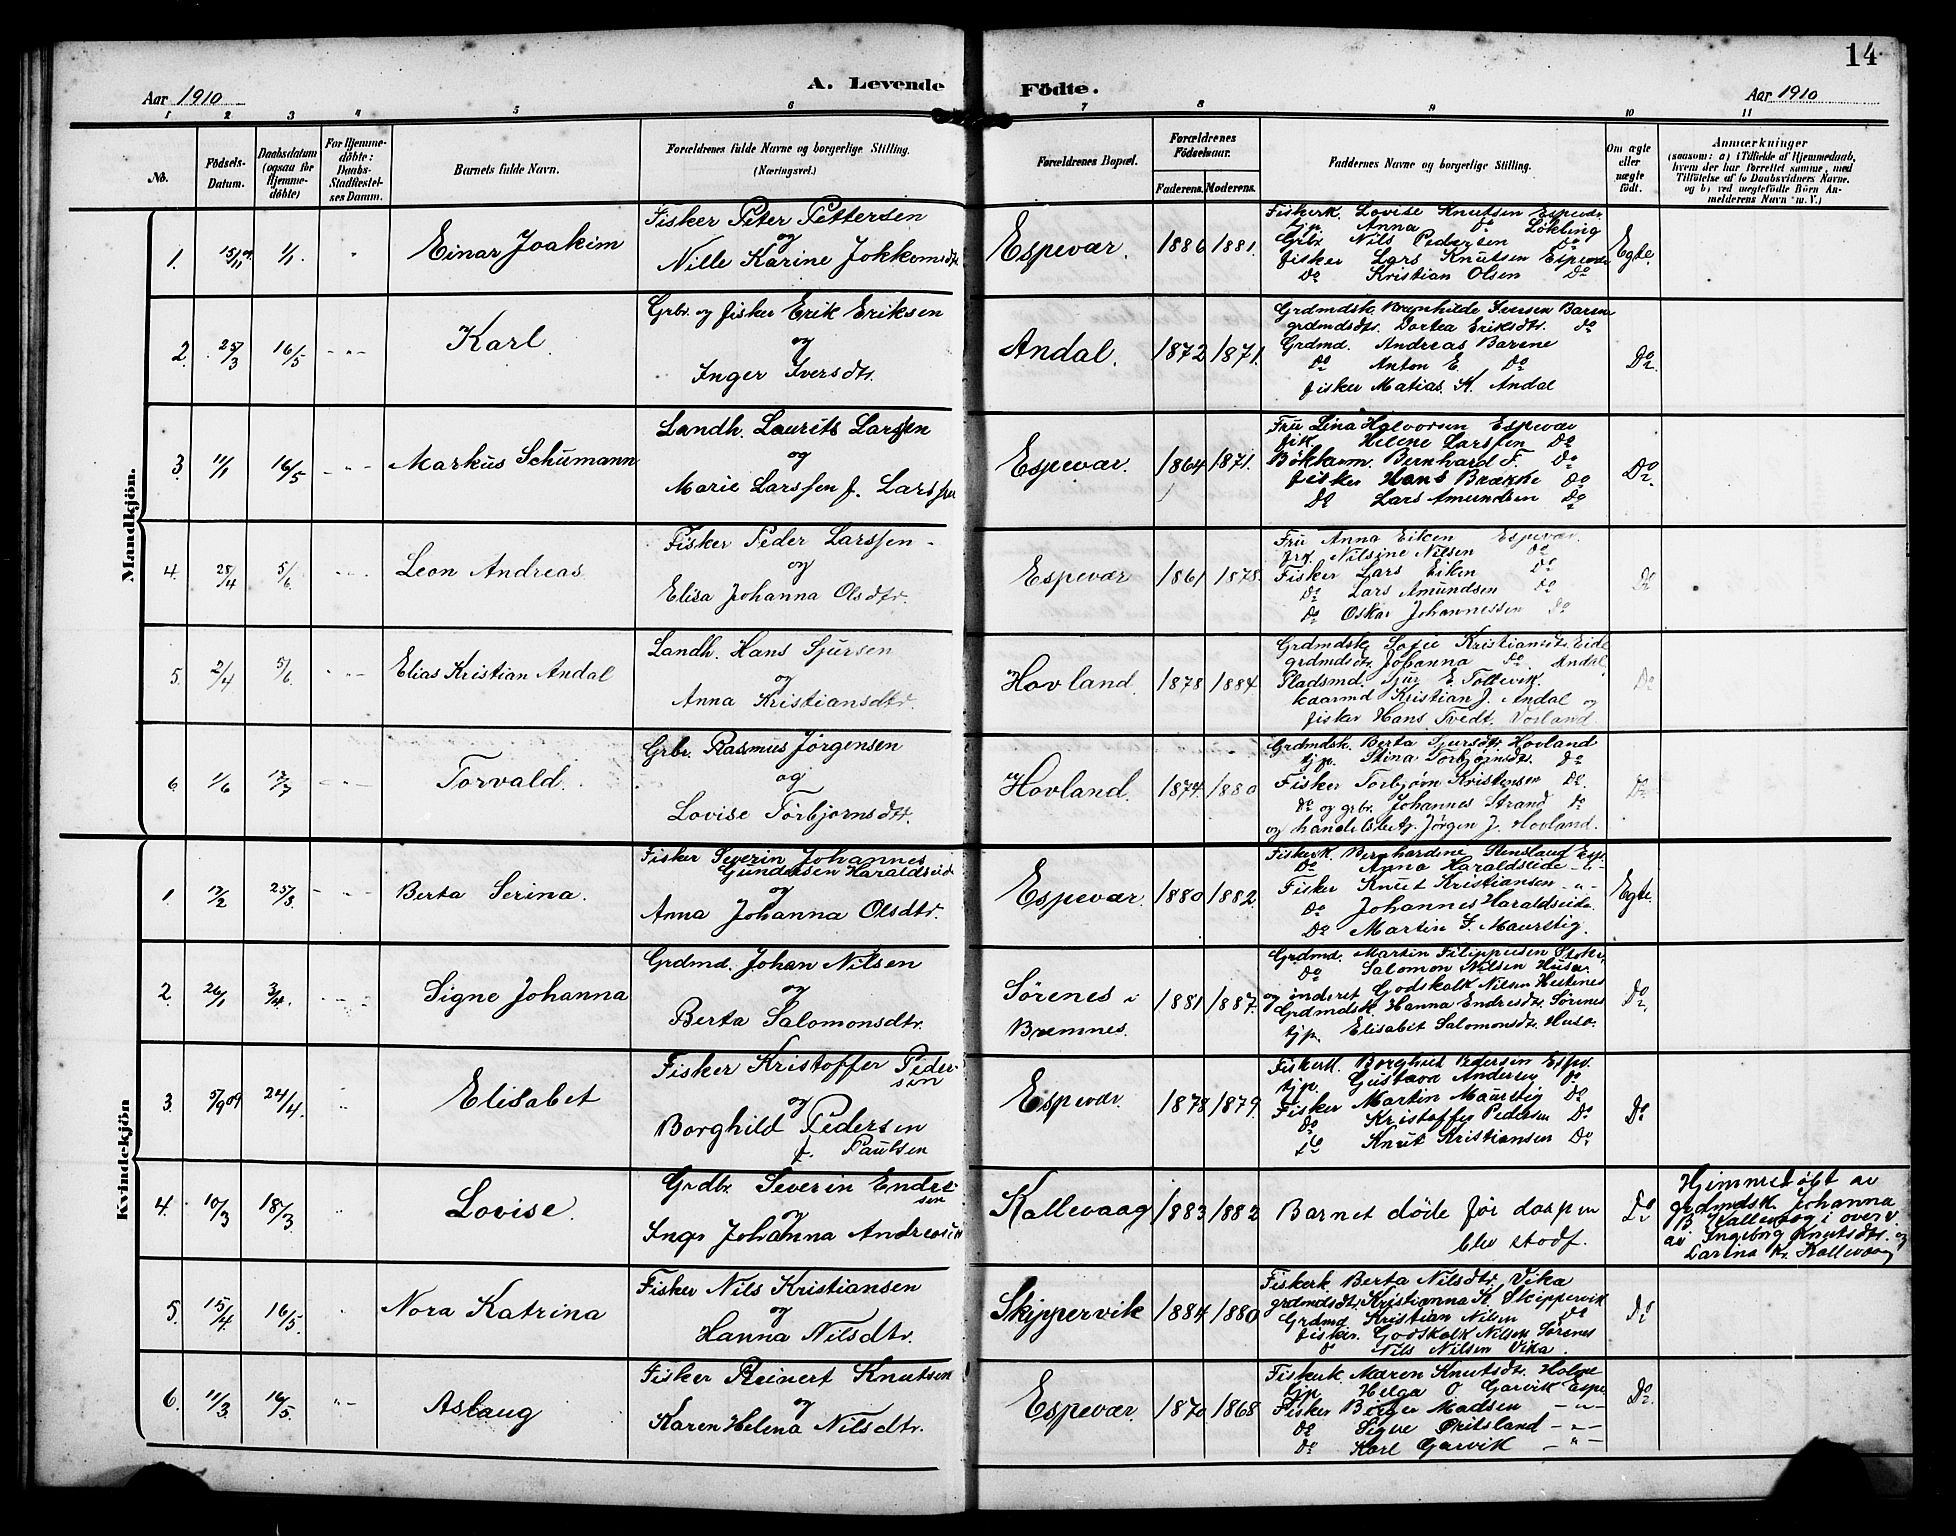 14
Aar 1910
A. Levende
Födte.
Aar 1910
1 2 3 4 5 6 7 8 9 10 11
No.
Födsels-
Datum.
Daabsdatum
(ogsaa for
Hjemme-
døbte)
For Hjemme-
døbte:
Daabs-
Stadfæstel-
ses Datum.
Barnets fulde Navn.
Forældrenes fulde Navne og borgerlige Stilling.
(Næringsvei.)
Forældrenes Bopæl.
Forældrenes
Födselsaar.
Faderens. Moderens.
Faddernes Navne og borgerlige Stilling.
Om ægte
eller
uægte
født.
Anmærkninger
(saasom: a) i Tilfælde af Hjemmedaab,
hvem der har forrettet samme, med
Tilføielse af to Daabsvidners Navne,
og b) ved uægtefødte Børn An-
melderens Navn m. V.)
Mandkjön.
1. 15/11 09. 1/1 "
Einar Joakim
Fisker Peter Pettersen
og
Nille Karine Jokkumsdtr
Espevær. 1886 1881.
Fiskerk. Lovise Knutsen Espevær
tjp. Anna do Løkling
Grbr. Nils Pedersen do
fisker Lars Knutsen Espevær
Do Kristian Olsen Do
Egte.
2. 25/3 16/5 - " -
Karl.
Grbr. og fisker Erik Eriksen
og
Inger Iversdtr.
Andal. 1872 1871.
Grdmdsk. Brynhilde Iversen Barene
grdmdsdtr. Dortea Eriksdtr. do
Grdmd. Andreas Barene
Do Anton E. Do
fisker Matias K. Andal
Do.
3. 11/1 16/5 - " -
Markus Schumann
Landh. Laurits Larssen
og
Marie Larssen f. Larssen
Espevær. 1864 1871.
Fru Lina Halvorsen Espevær
frk. Helene Larssen Do
Bøkkerm. Bernhard F. Do
fisker Hans Brække Do
Do Lars Amundsen Do
Do.
4. 25/4 5/6 - " -
Leon Andreas
Fisker Peder Larssen -
og
Elisa Johanna Olsdtr.
Espevær 1861 1878.
Fru Anna Eiken Espevær.
frk. Nilsine Nilsen Do
Fisker Lars Eiken Do
Do Lars Amundsen Do
Do Oskar Johannessen Do
Do
5. 2/4 5/6 - " -
Elias Kristian Andal
Landh. Hans Sjursen
og
Anna Kristiansdtr.
Hovland. 1878 1884.
Grdmdsk. Kristiansdtr. Eide
grdmdsdtr. Johanna Do. Andal.
Pladsmd. Sjur E. Tollevik.
kaarmd Kristian J. Andal og
fisker Hans Tvedt. Vorland.
Do
6. 1/6 17/7 - " -
Torvald.
Grbr. Rasmus Jørgensen
og
Lovise Torbjørnsdtr.
Hovland. 1874. 1880
Grdmdsk. Berta Sjursdtr. Hovland
tjp. Stina Torbjørnsdtr. Do
Fisker Torbjørn Kristensen Do.
Do og grbr. Johannes Strand Do
og handelsbetj. Jørgen J. Hovland.
Do.
Kvindekjön
1. 12/2 25/3 - " -
Berta Serina.
Fisker Severin Johannes
Gundersen Haraldseide
og
Anna Johanna Olsdtr.
Espevær. 1880 1882.
Fiskerk. Bernhardine Stensland Esp.
Do Anna Haraldseide - " -
Fisker Knut Kristiansen - " -
Do Johannes Haraldseide.
Do Martin S. Maurstig.
Egte.
2. 26/1 3/4. - " -
Signe Johanna
Grdmd. Johan Nilsen
og
Berta Salomonsdtr.
Sørenes i
Bremnes.
1881 1887.
Grdmd. Martin Filippusen
Do Salomon Nilsen Huse
og inderst Godskalk Nilsen Hestenes
Grdmdsk. Hanna Endresdtr. Sørenes
tjp. Elisabet Salomonsdtr. Huse.
Do.
3. 5/9 09 24/4. "
Elisabet
Fisker Kristoffer Peder-
sen
og
Borghild Pedersen
f. Paulsen
Espevær. 1878 1879.
Fiskerk. Borghild Pedersen Espev.
tjp. Gustava Andersen Do
Fisker Martin Maurstig Do
Do Kristoffer Pedersen Do
Do Knut Kristiansen Do
Do
4. 10/3 18/3 "
Lovise.
Grdbr. Severin Endre-
sen
og
Inga Johanna Andreasdtr
Kallevaag 1883 1882
Barnet døde før daapen
blev stadf.
Do
Hjemmedøbt av
grdmdsk. Johanna
B. Kallevaag i overv.
av Ingeborg Knutsdtr. og
Larina Kr. Kallevaag
5. 15/4. 16/5. "
Nora Katrina
Fisker Nils Kristiansen
og
Hanna Nilsdtr.
Skippervik 1884 1880
Fiskerk. Berta Nilsdtr. Vika
grdmdsdtr. Kristianna K. Skippervik
Grdmd Kristian Nilsen Do
fisker. Godskalk Nilsen Sørenes
Do Nils Nilsen Vika.
Do
6. 11/3. 16/5. " -
Aslaug
Fisker Reinert Knutsen
og
Karen Helena Nilsdtr.
Espevær. 1870 1868
Fiskerk. Maren Knutsdtr.
tjp. Helga O Garvik Espe
Fisker Børge Madsen - " -
Do Sigve Oritsland - " -
Do Karl Garvik - " -
Do.